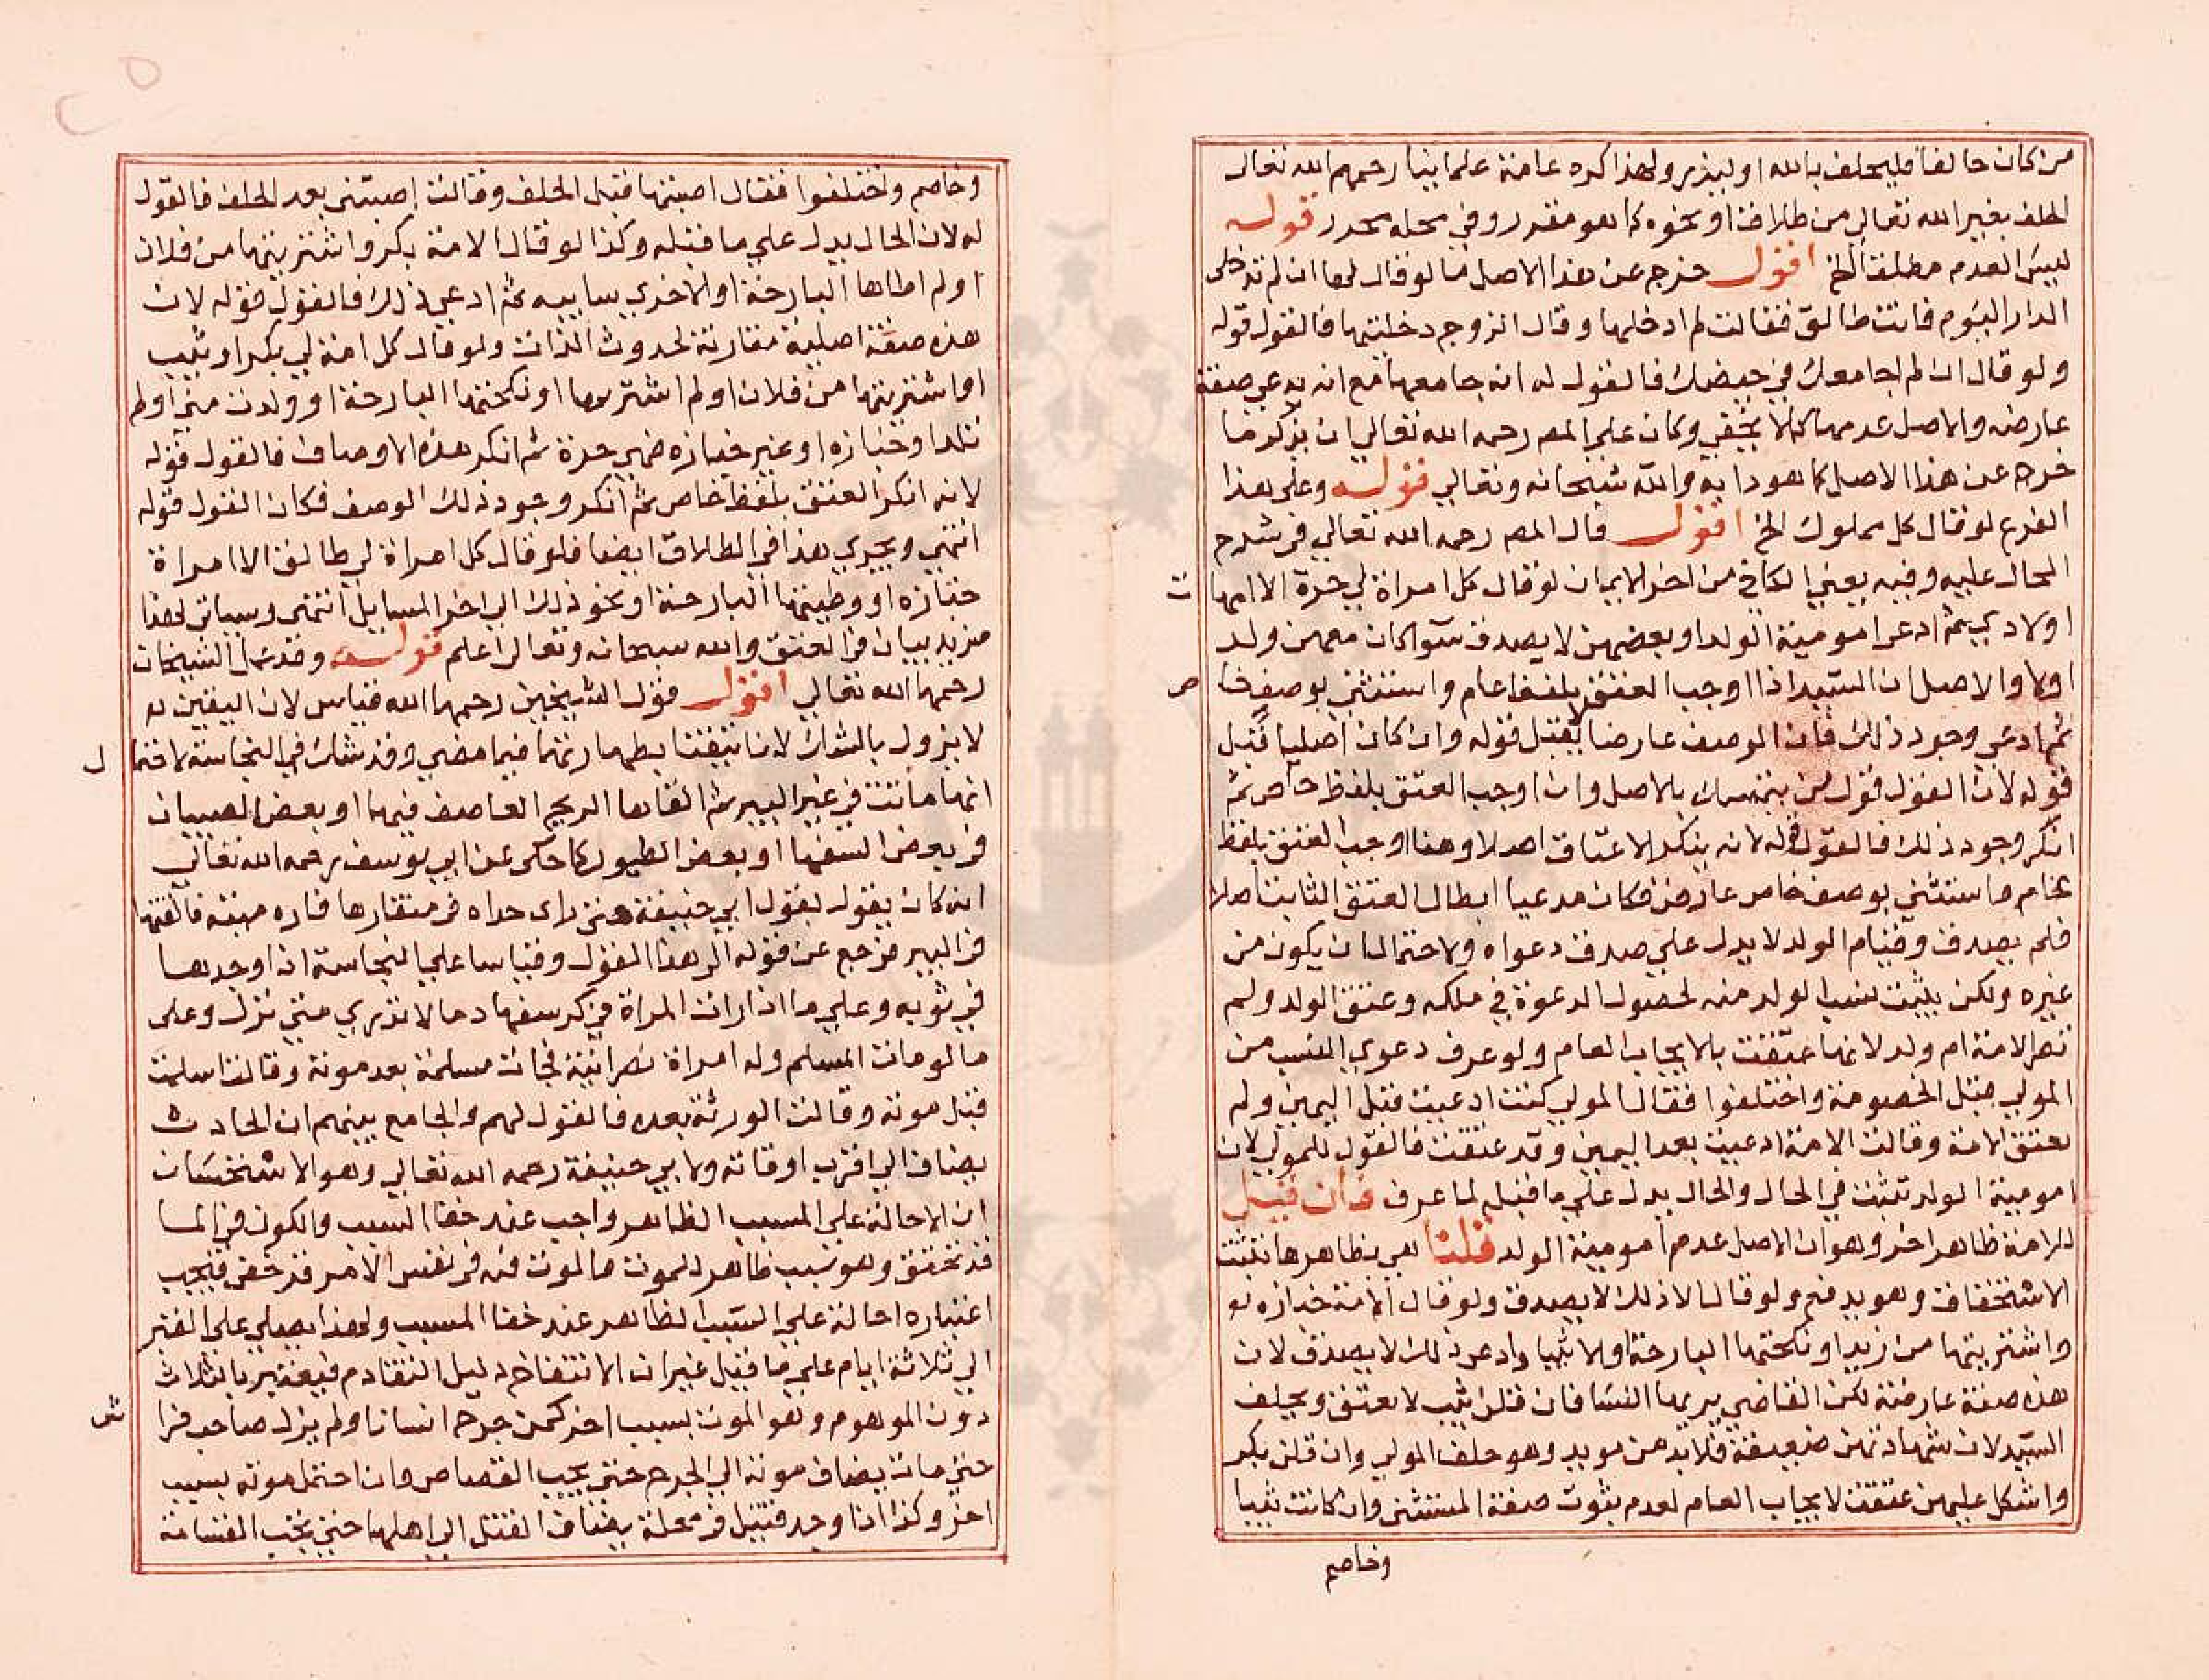 من كان حالفا فليحلف بالله او ليذر ولهذا كره عامة علماينا رحمهم الله تعالى
الحلف بغير الله تعالى من طلاق او نحوه كما هو مقرر وفي محله محرر قوله
ليس العدم مطلقا الخ اقول خرج عن هذا الاصل ما لو قال لها ان لم تدخلى
الدار اليوم فانت طالق فقالت لم ادخلها وقال الزوج دخلتيها فالقول قوله
ولو قال ان لم اجامعك في حيضك فالقول له انه جامعها مع انه يدعي صفة
عارضه والاصل عدمها كما لا يخفي وكان على المص رحمه الله تعالى ان يذكر ما
خرج عن هذا الاصل كما هو دابه والله سبحانه وتعالي قوله وعلى هذا
الفرع لو قال كل مملوك الخ اقول قال المص رحمه الله تعالي في شرح
المحال عليه وفيه يعني الكافي من اخر الايمان لو قال كل امراة لي حرة الا امهات
اولادي ثم ادعى امومية الولد او بعضهن لا يصدق سوآ كان معهن ولد
اولا والاصل ان السيد اذا اوجب العتق بلفظ عام واستثنى بوصف خاص
ثم ادعى وجود ذلك فان الوصف عارضا لا يقبل قوله وان كان اصليا قبل
قوله لان القول قول من يتمسك بالاصل وان اوجب العتق بلفظ خاص ثم
انكر وجود ذلك فالقول قوله لانه ينكر الاعتاق اصلا وهنا اوجب العتق بلفظ
عام واستثنى بوصف خاص عارض فكان مدعيا ابطال العتق الثابت اصلا
فلم يصدق وقيام الولد لا يدل على صدق دعواه ولاحتمال ان يكون من
غيره ولكن يثبت نسب الولد منه لحصول الدعوة في ملكه وعتق الولد ولم
تصر الامة ام ولد لانها عتقت بالايجاب العام ولو عرف دعوي النسب من
المولي قبل الخصومة واختلفوا فقال المولي كنت ادعيت قبل اليمين ولم
تعتق الامة وقالت الامة ادعيت بعد اليمين وقد عتقت فالقول للمولي لان
امومية الولد تثبت في الحال والحال يدل علي ما قبله لما عرف فان قيل
للامة ظاهر اخر وهو ان الاصل عدم امومية الولد قلنا هي بظاهرها تثبت
الاستحقاق وهو يدفع ولو قال الا ذلك لا يصدق ولو قال الا امة خبازه او
واشتريتها من زيد او نكحتها البارحة اولا ثيبا وادعى ذلك لا يصدق لان
هذه صفة عارضة لكن القاضي يريها النسا فان قلن ثيب لا تعتق ويحلف
السيد لان شهادتهن ضعيفة فلا بد من مويد وهو حلف المولي وان قلن بكر
واشكل عليهن عتقت لايجاب العام لعدم ثبوت صفة المستثنى وان كانت ثيبا
وخاصم
وخاصم واختلفوا فقال اصبتها قبل الحلف وقالت اصبتني بعد الحلف فالقول
له لان الحال يدل علي ما قبله وكذا لو قال الا امة بكر او اشتريتها من فلان
او لم اطاها البارحة او الاخرى سابيه ثم ادعي ذلك فالقول قوله لان
هذه صفة اصلية مقارنة لحدوث الذات ولو قال كل امة لي بكر او ثيب
او اشتريتها من فلان او لم اشترها او نكحتها البارحة او ولدت مني او لم
تلد او خبازه او غير خبازه فهي حرة ثم انكر هذه الاوصاف فالقول قوله
لانه انكر العتق بلفظ خاص ثم انكر وجود ذلك الوصف فكان القول قوله
انتهي ويجري هذا في الطلاق ايضا فلو قال كل امراة لي طالق الا امراة
خبازه او وطيتها البارحة او نحو ذلك الي اخر المسايل انتهى وسياتى لهذا
مزيد بيان في العتق والله سبحانه وتعالى اعلم قوله وقد عمل الشيخان
رحمهما الله تعالي اقول قول الشيخين رحمهما الله قياس لان اليقين به
لا يزول بالشك لانا تيقنا بطهارتها فيما مضي وقد شك في النجاسة لاحتمال
انها ماتت في غير البير ثم القاها الريح العاصف فيها او بعض الصبيان
في بعض السفها او بعض الطيور كما حكى عن ابي يوسف رحمه الله تعالي
انه كان يقول بقول ابي حنيفة حتى راى حداه في منقارها فاره ميتة فالقتها
في البير فرجع عن قوله الى هذا القول وقياسا علي النجاسة اذا وجدها
في ثوبه وعلي ما اذا رات المراة في كرسفها دما لا تدري متي نزل وعلى
ما لو مات المسلم وله امراة نصرانية فجات مسلمة بعد موته وقالت اسلمت
قبل موته وقالت الورثة بعده فالقول لهم والجامع بينهم ان الحادث
يضاف الي اقرب اوقاته ولابي حنيفة رحمه الله تعالي وهو الاستحسان
ان الاحالة علي المسبب الظاهر واجب عند خفا السبب والكون في الما
قد تحقق وهو سبب ظاهر للموت فالموت فيه في نفس الامر قد خفي فيجب
اعتباره احالة علي السبب الظاهر عند خفا المسبب ولهذا يصلي على القبر
الي ثلاثة ايام علي ما قيل غير ان الانتفاخ دليل التقادم فيقدر بالثلاث
دون الموهوم وهو الموت بسبب اخر كمن جرح انسانا ولم يزل صاحب فراش
حتي مات يضاف موته الي الجرح حتي يجب القصاص وان احتمل موته بسبب
اخر وكذا اذا وجد قتيل في محلة يضاف القتل الى اهلها حتي تجب القسامة